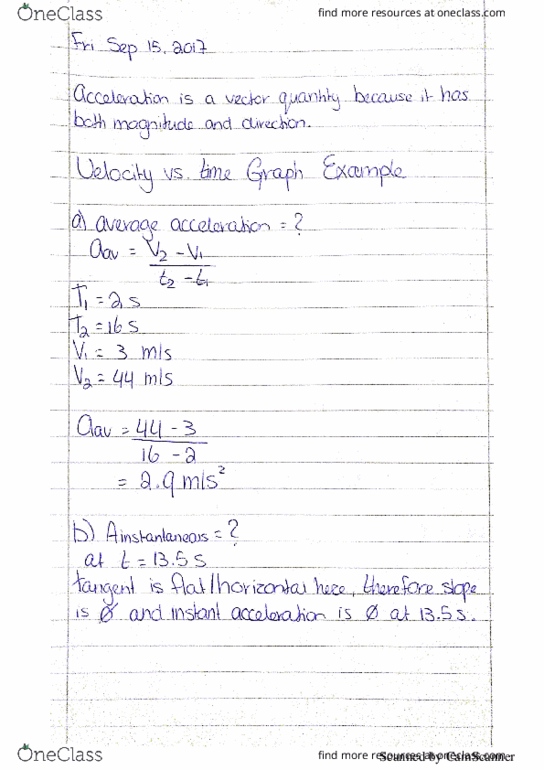 OneClass
find more resources at oneclass.com
Fri Sep 15, 2017
Acceleration is a vector quantity because it has
both magnitude and direction.
Velocity vs. time Graph Example
a) average acceleration = ?
aav = V2 - V1
t2 - t1
T1 = 2 s
T2 = 16 s
V1 = 3 m/s
V2 = 44 m/s
aav = 44 - 3
16 - 2
= 2.9 m/s²
b) Ainstantaneous = ?
at t = 13.5 s
tangent is flat/horizontal here, therefore slope
is Ø and instant acceleration is Ø at 13.5 s.
OneClass
find more resources at oneclass.com
Scanned by CamScanner